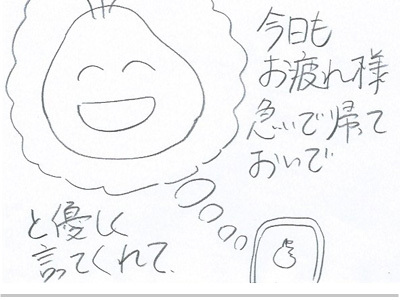 今日も
お疲れ様
急いで帰って
おいで
と優しく
言ってくれて、